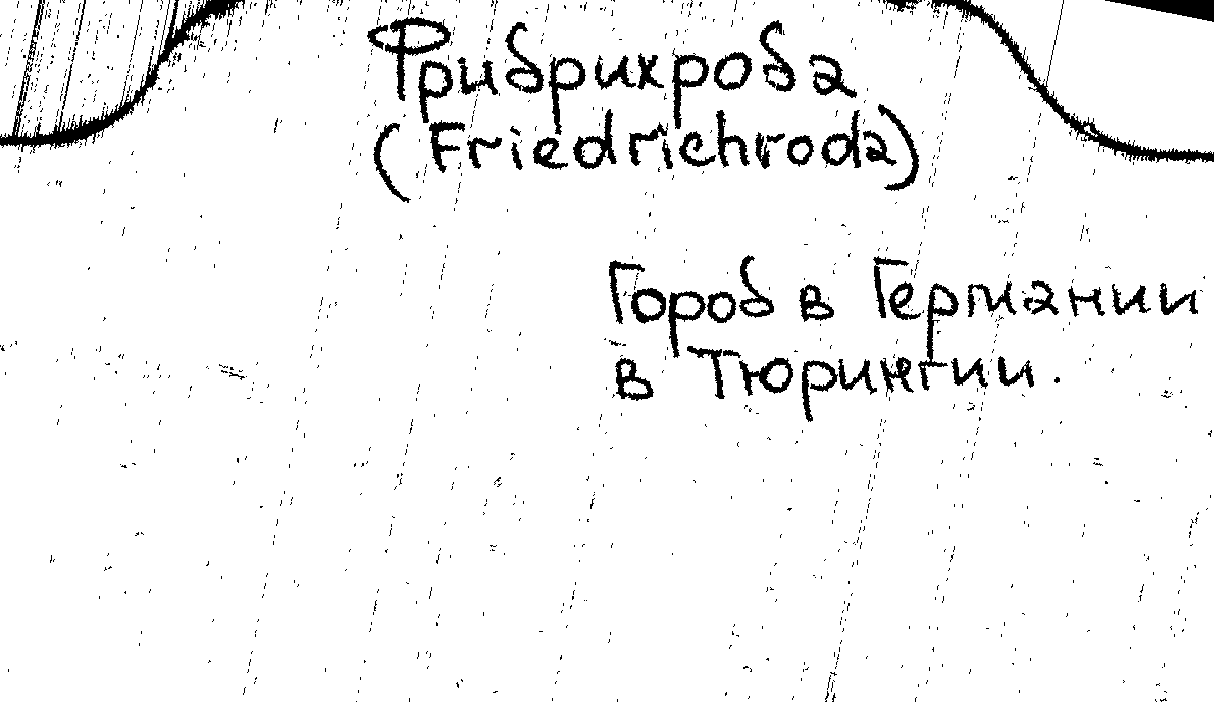 Фридрихрода
(Friedrichroda)
Город в Германии
в Тюрингии.